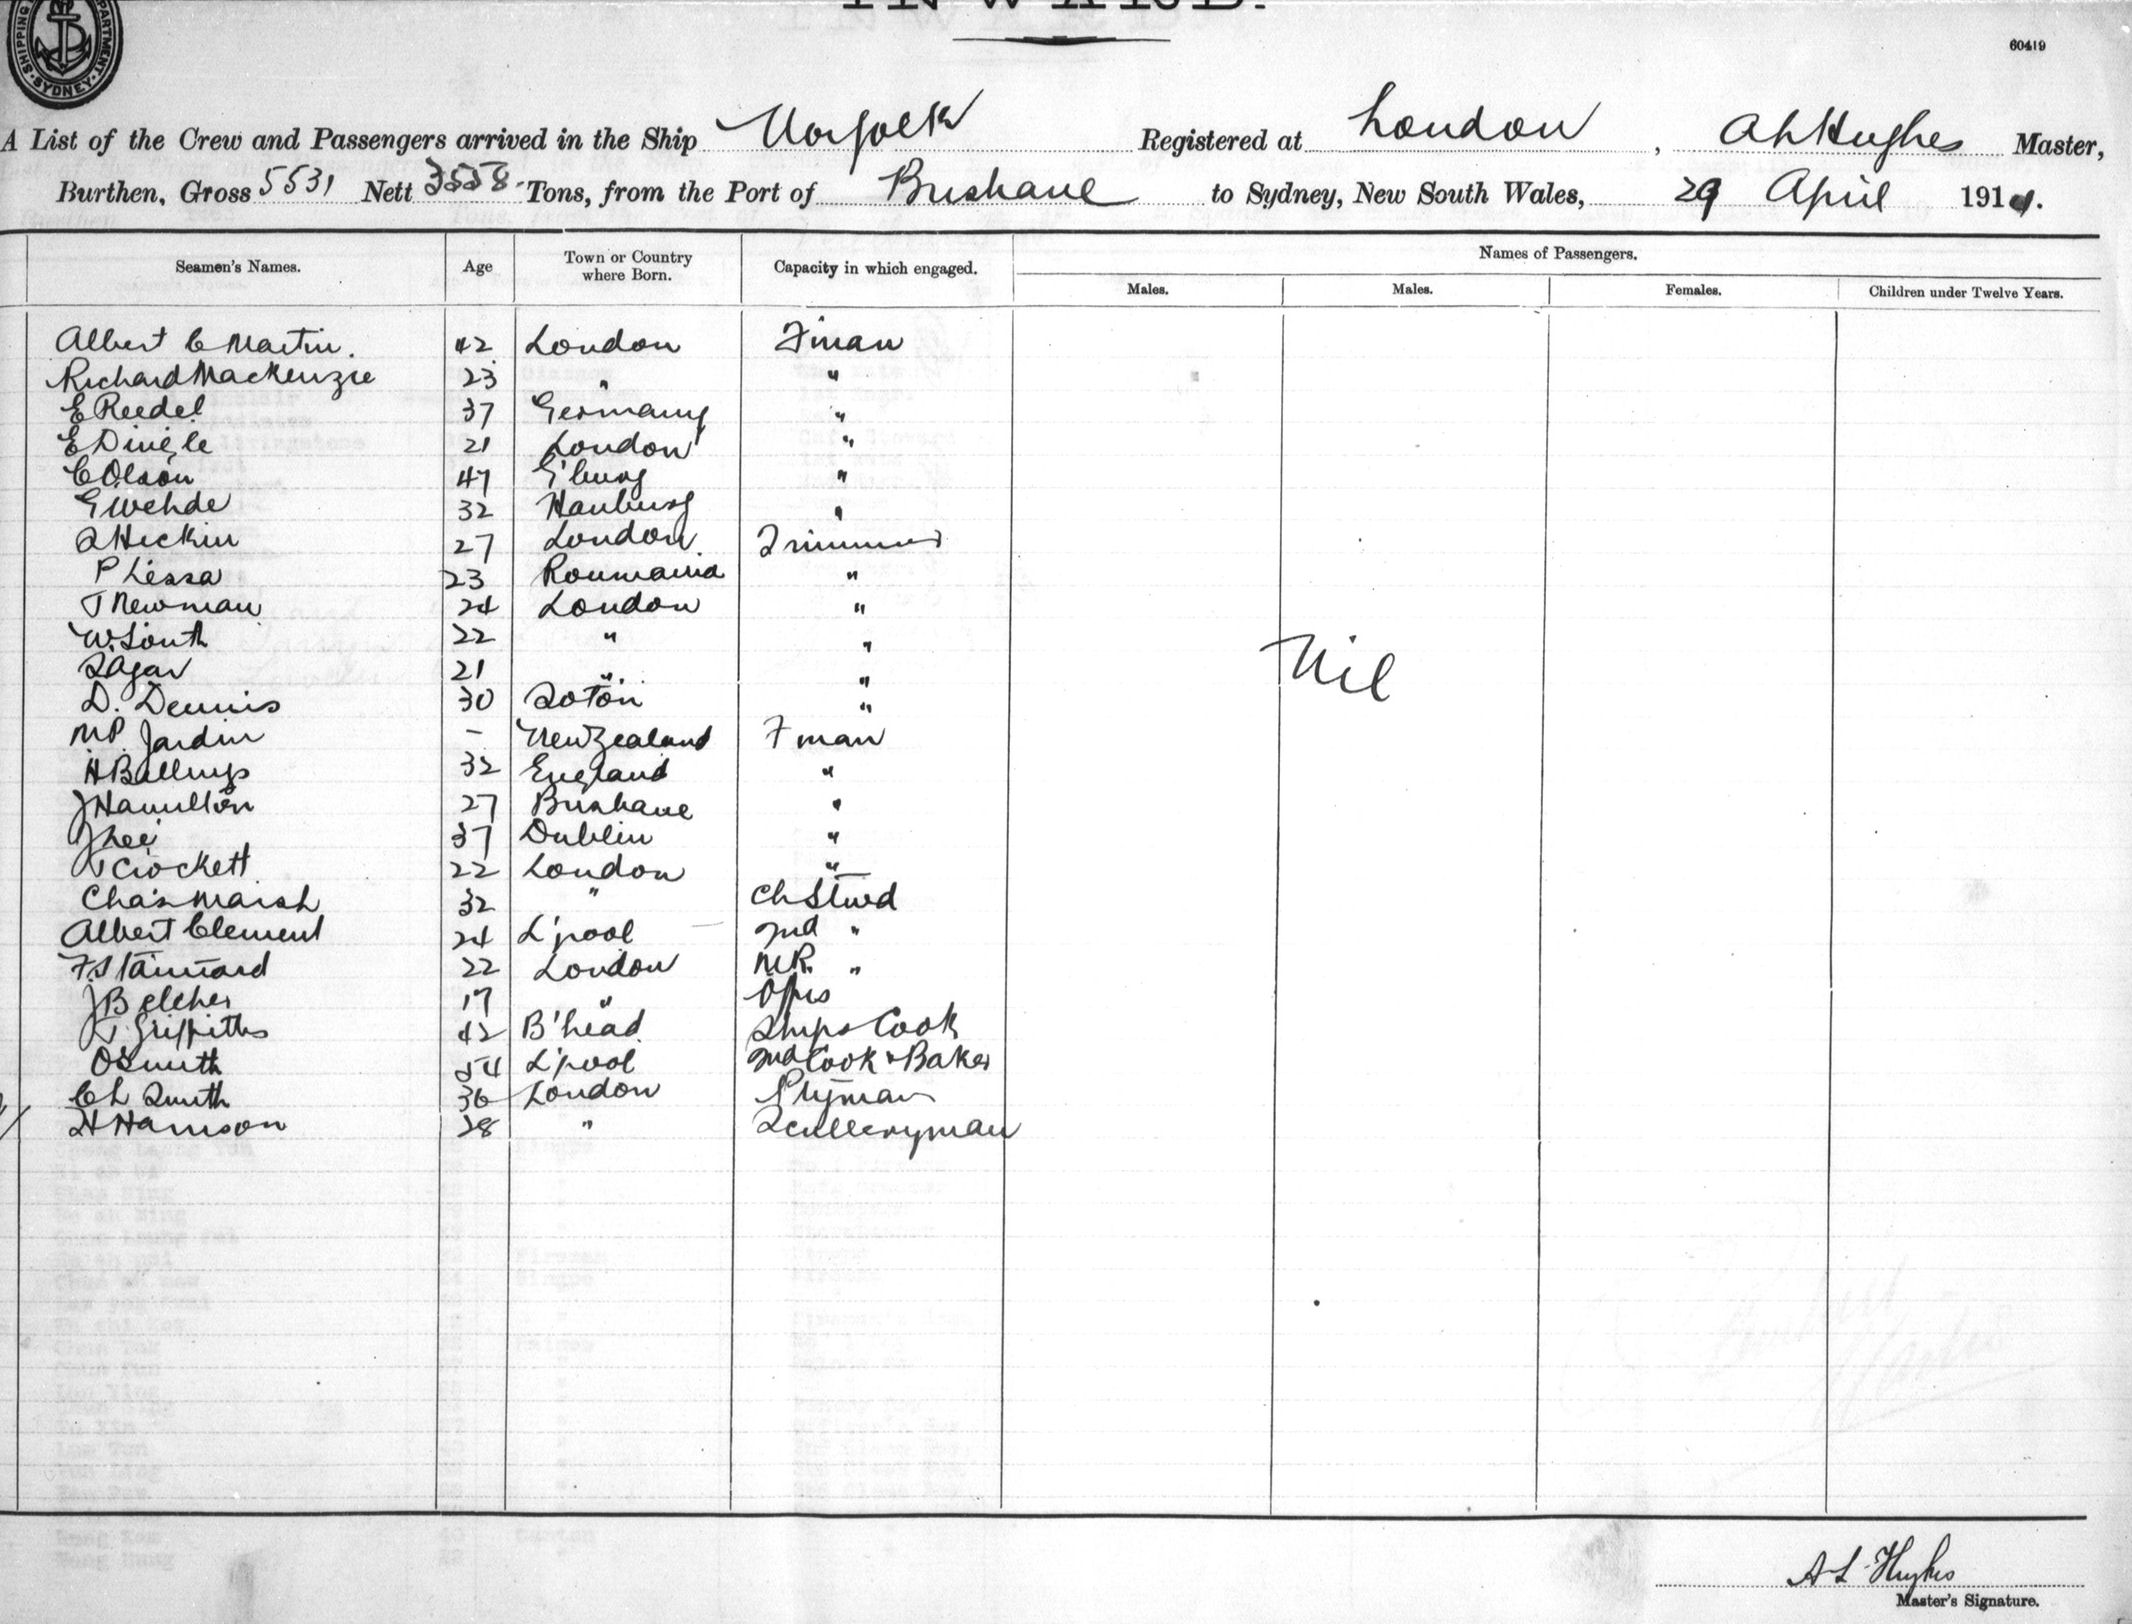 INWARD.
SHIPPING DEPARTMENT SYDNEY
60419
A List of the Crew and Passengers arrived in the Ship Norfolk Registered at London, A L Hughes Master,
Burthen, Gross 5531 Nett 3558 Tons, from the Port of Brisbane to Sydney, New South Wales, 29 April 1914.
Names of Passengers.
Seamen's Names. Age Town or Country where Born. Capacity in which engaged. Males. Males. Females. Children under Twelve Years.
Albert C Martin. 42 London Fman
Richard MacKenzie 23 " "
E Riedel 37 Germany "
E Dingle 21 London "
C Olson 47 G'burg "
G Wehde 32 Hamburg "
S Heckin 27 London Trimmer
P Lissa 23 Roumania "
T Newman 24 London "
W. South 22 " "
S Agar 21 " "
Nil
D. Dennis 30 Soton "
M.P. Jardin - New Zealand Fman
H Billings 32 England "
J Hamilton 27 Brisbane "
J Lee 37 Dublin "
T Crockett 22 London "
Chas Marsh 32 " Ch Stwd
Albert Clement 24 L'pool 2nd "
F. Stannard 22 London M.R. "
J Belcher 17 " Offrs
T. Griffiths 42 B'head Ships Cook
O Smith 54 L'pool 2nd Cook & Baker
C L Smith 36 London Ptyman
H Harrison 28 " Sculleryman
A L Hughes
Master's Signature.